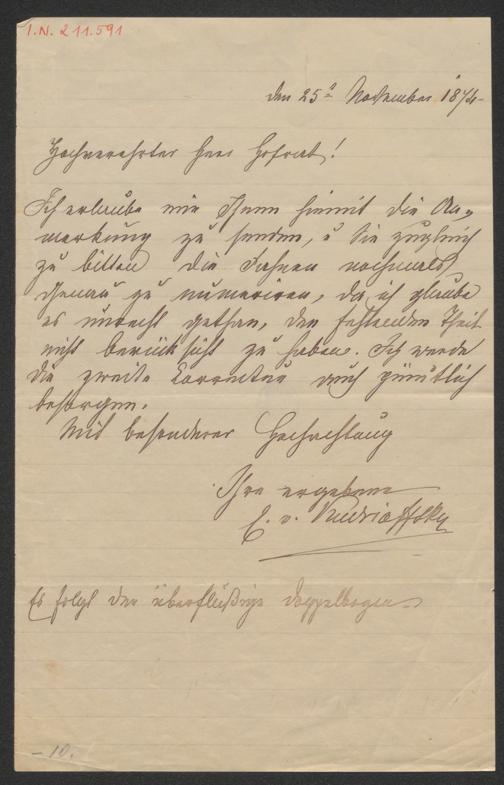 I.N. 211.591
den 25ᵗ November 187
Hochverehrter Herr Hofrat!
Ich erlaube mir Ihnen hiemit die An-
merkung zu senden, u Sie zugleich
zu bitten die Fahnen nochmals
genau zu numeriren, da ich glaube
es unrecht gethan, den fehlenden Theil
nicht berücksicht zu haben. Ich werde
die zweite Correctur auch pünktlich
besorgen.
Mit besonderer Hochachtung
Ihre ergebene
E. v. Kudriaffsky
Es folgt der überflüßige Doppelbogen
– 10.